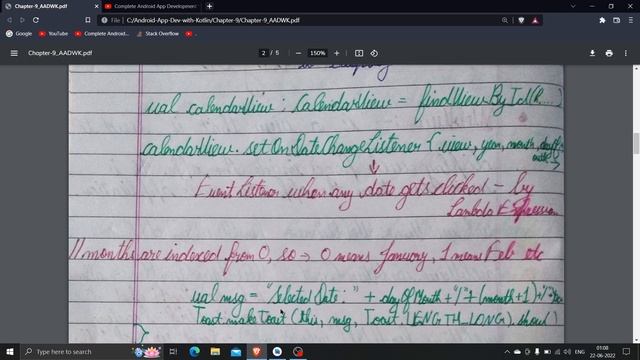 Chapter-9_AADWK.pdf
Complete Android App Development
File
C:/Android-App-Dev-with-Kotlin/Chapter-9/Chapter-9_AADWK.pdf
Google
YouTube
Complete Android...
Stack Overflow
Chapter-9_AADWK.pdf
2 / 5
150%
val calendarView: CalendarView = findViewById(R....)
calendarView.setOnDateChangeListener { view, year, month, dayOf
month →
Event Listener when any date gets clicked - by
Lambda Expression
// months are indexed from 0, so → 0 means January, 1 means Feb etc
val msg = "Selected Date: " + dayOfMonth + "/" + (month+1) + "/" +
Toast.makeText(this, msg, Toast.LENGTH_LONG).show()
}
Type here to search
ENG
01:08
22-06-2022